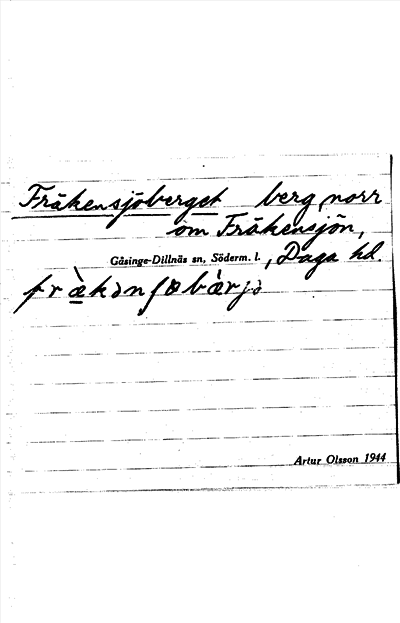 Fräkensjöberget berg norr
om Fräkensjön,
Gåsinge-Dillnäs sn, Söderm. l., Daga hd.
fræ̀kənʃøbær̀jə
Artur Olsson 1944